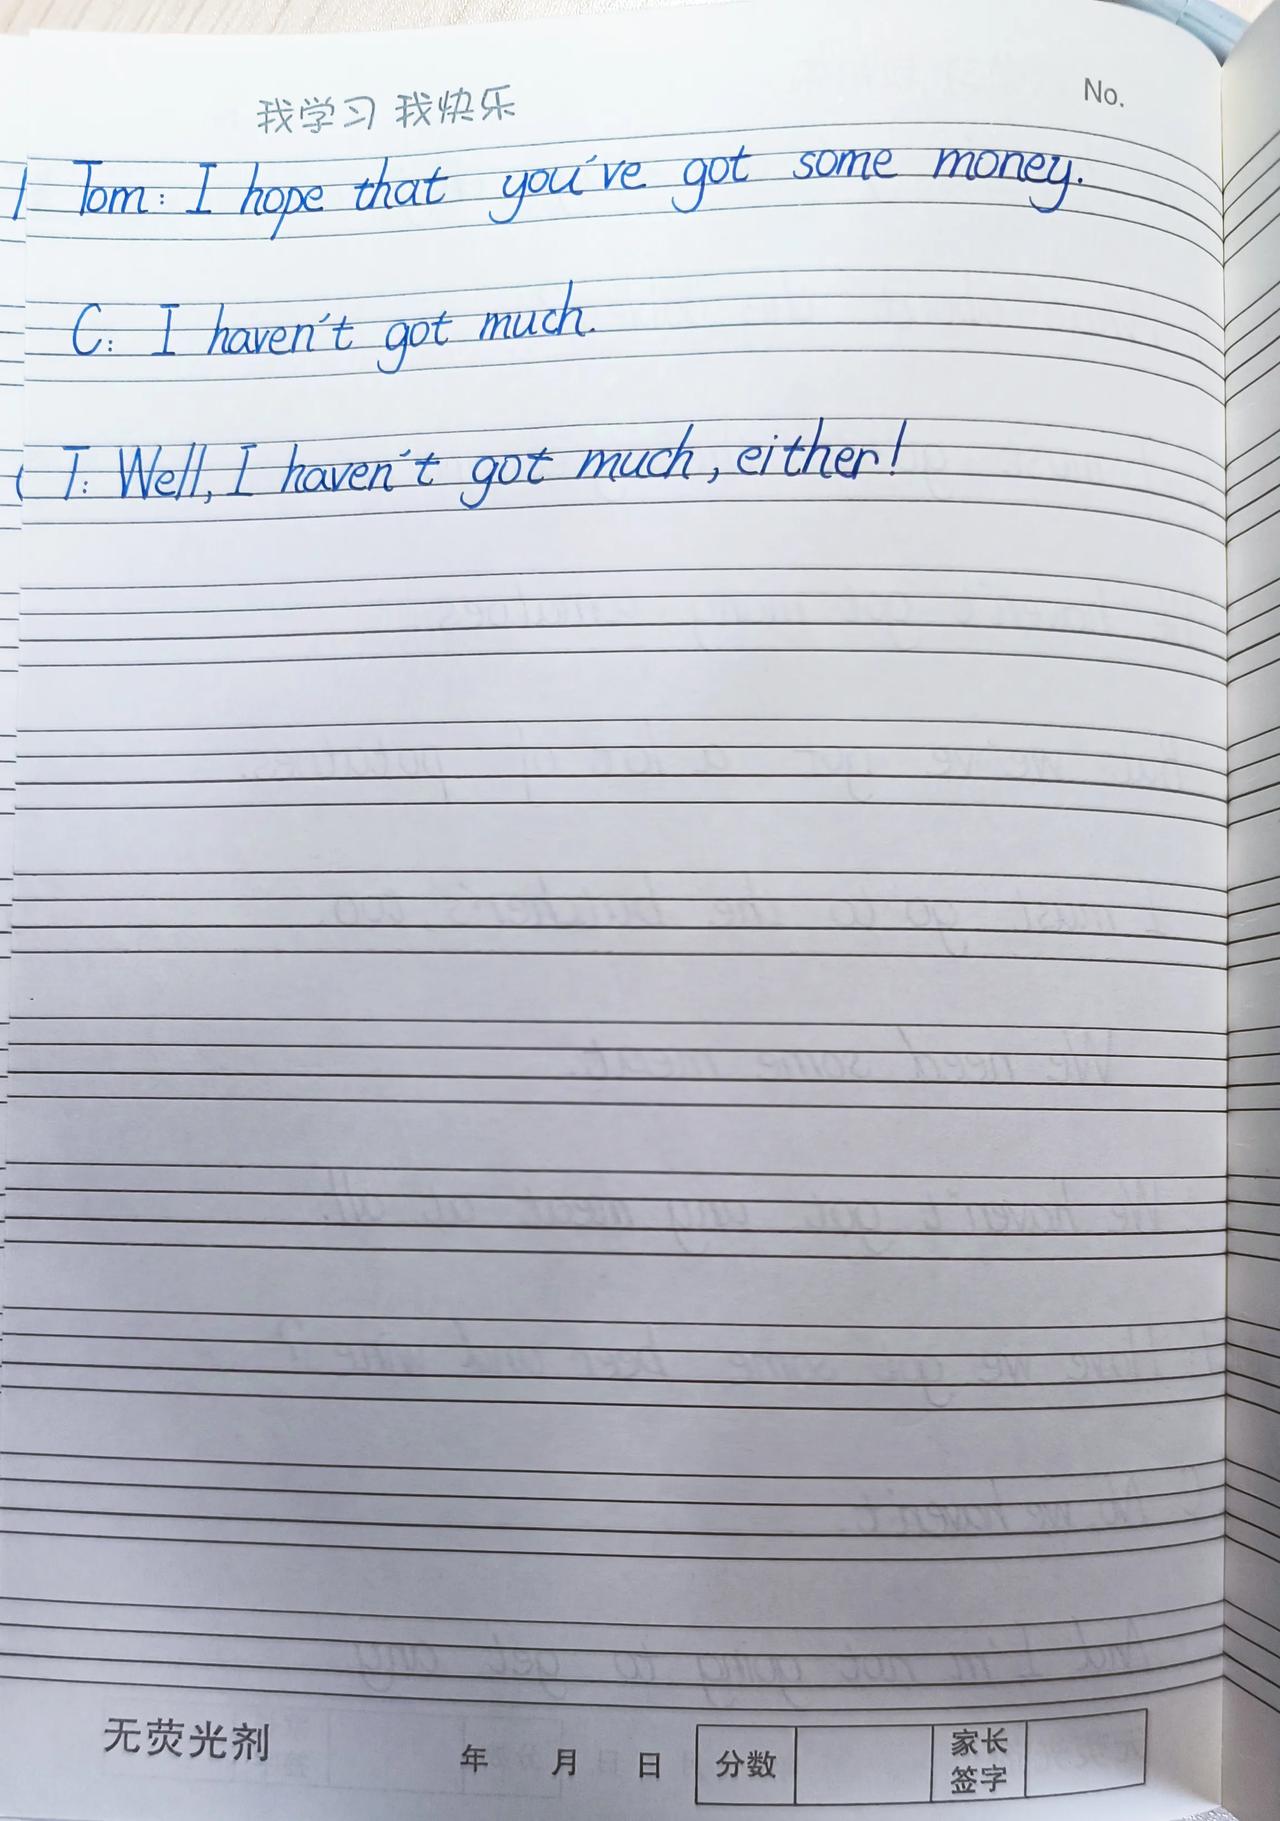 我学习 我快乐
No.
Tom: I hope that you've got some money.
C: I haven't got much.
T: Well, I haven't got much, either!
无荧光剂
年 月 日 分数 家长签字